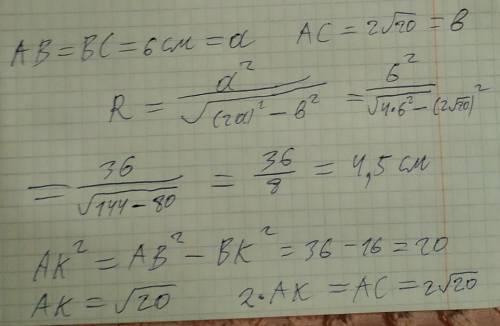 AB = BC = 6 см = a    AC = 2√20 = b
R = a² / √((2a)² − b²) = 6² / √(4·6² − (2√20)²)
= 36 / √(144 − 80) = 36 / 8 = 4,5 см
AK² = AB² − BK² = 36 − 16 = 20
AK = √20    2·AK = AC = 2√20